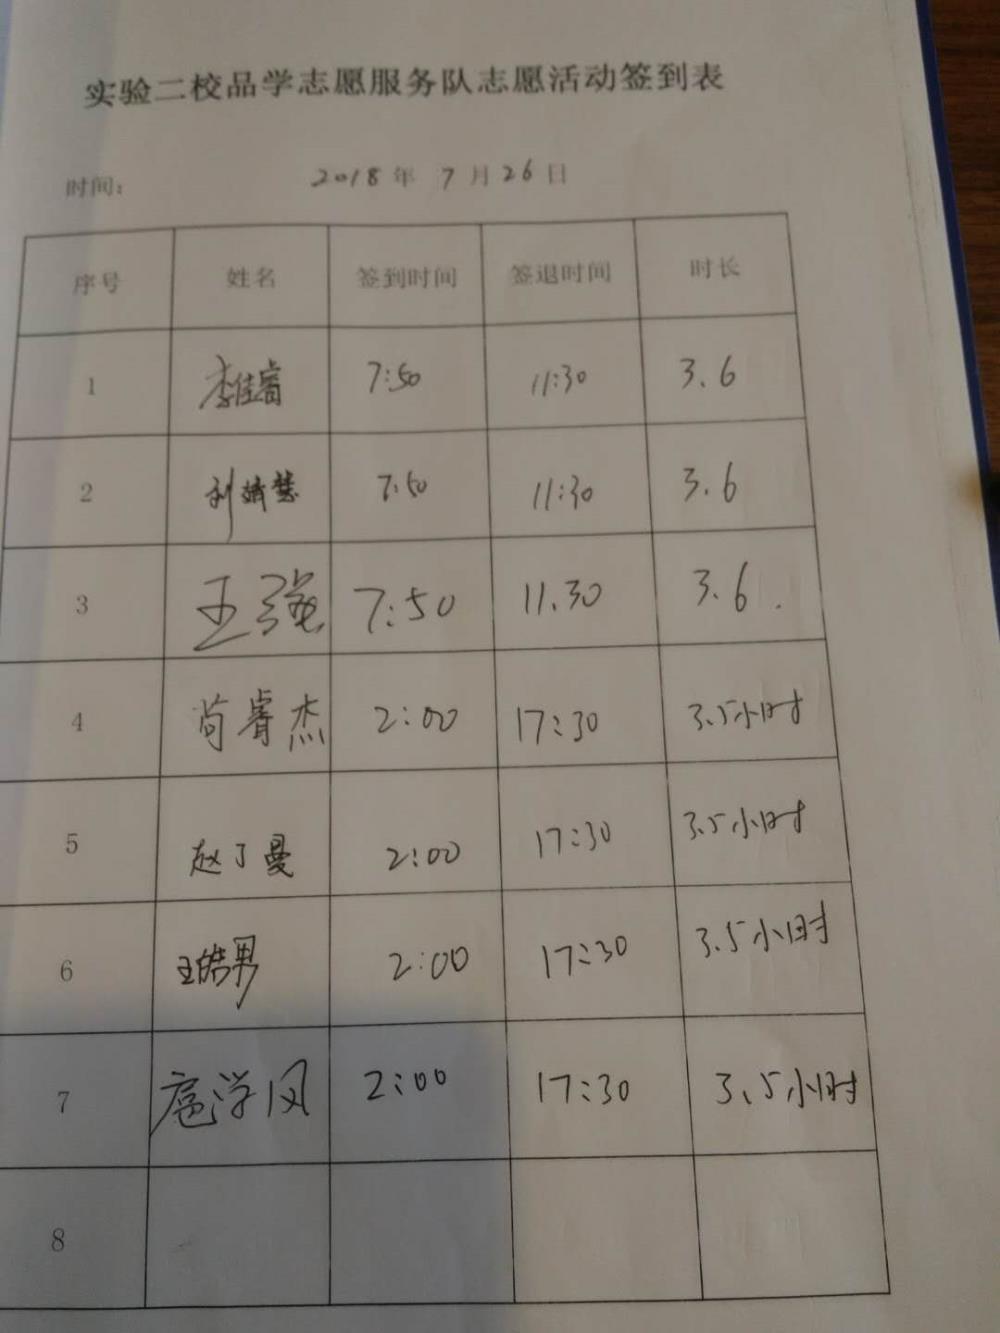 实验二校品学志愿服务队志愿活动签到表
时间: 2018年 7月26日
序号 姓名 签到时间 签退时间 时长
1 李佳睿 7:50 11:30 3.6
2 刘婧慧 7:50 11:30 3.6
3 王强 7:50 11.30 3.6.
4 苟睿杰 2:00 17:30 3.5小时
5 赵丁曼 2:00 17:30 3.5小时
6 王皓男 2:00 17:30 3.5小时
7 扈学凤 2:00 17:30 3、5小时
8